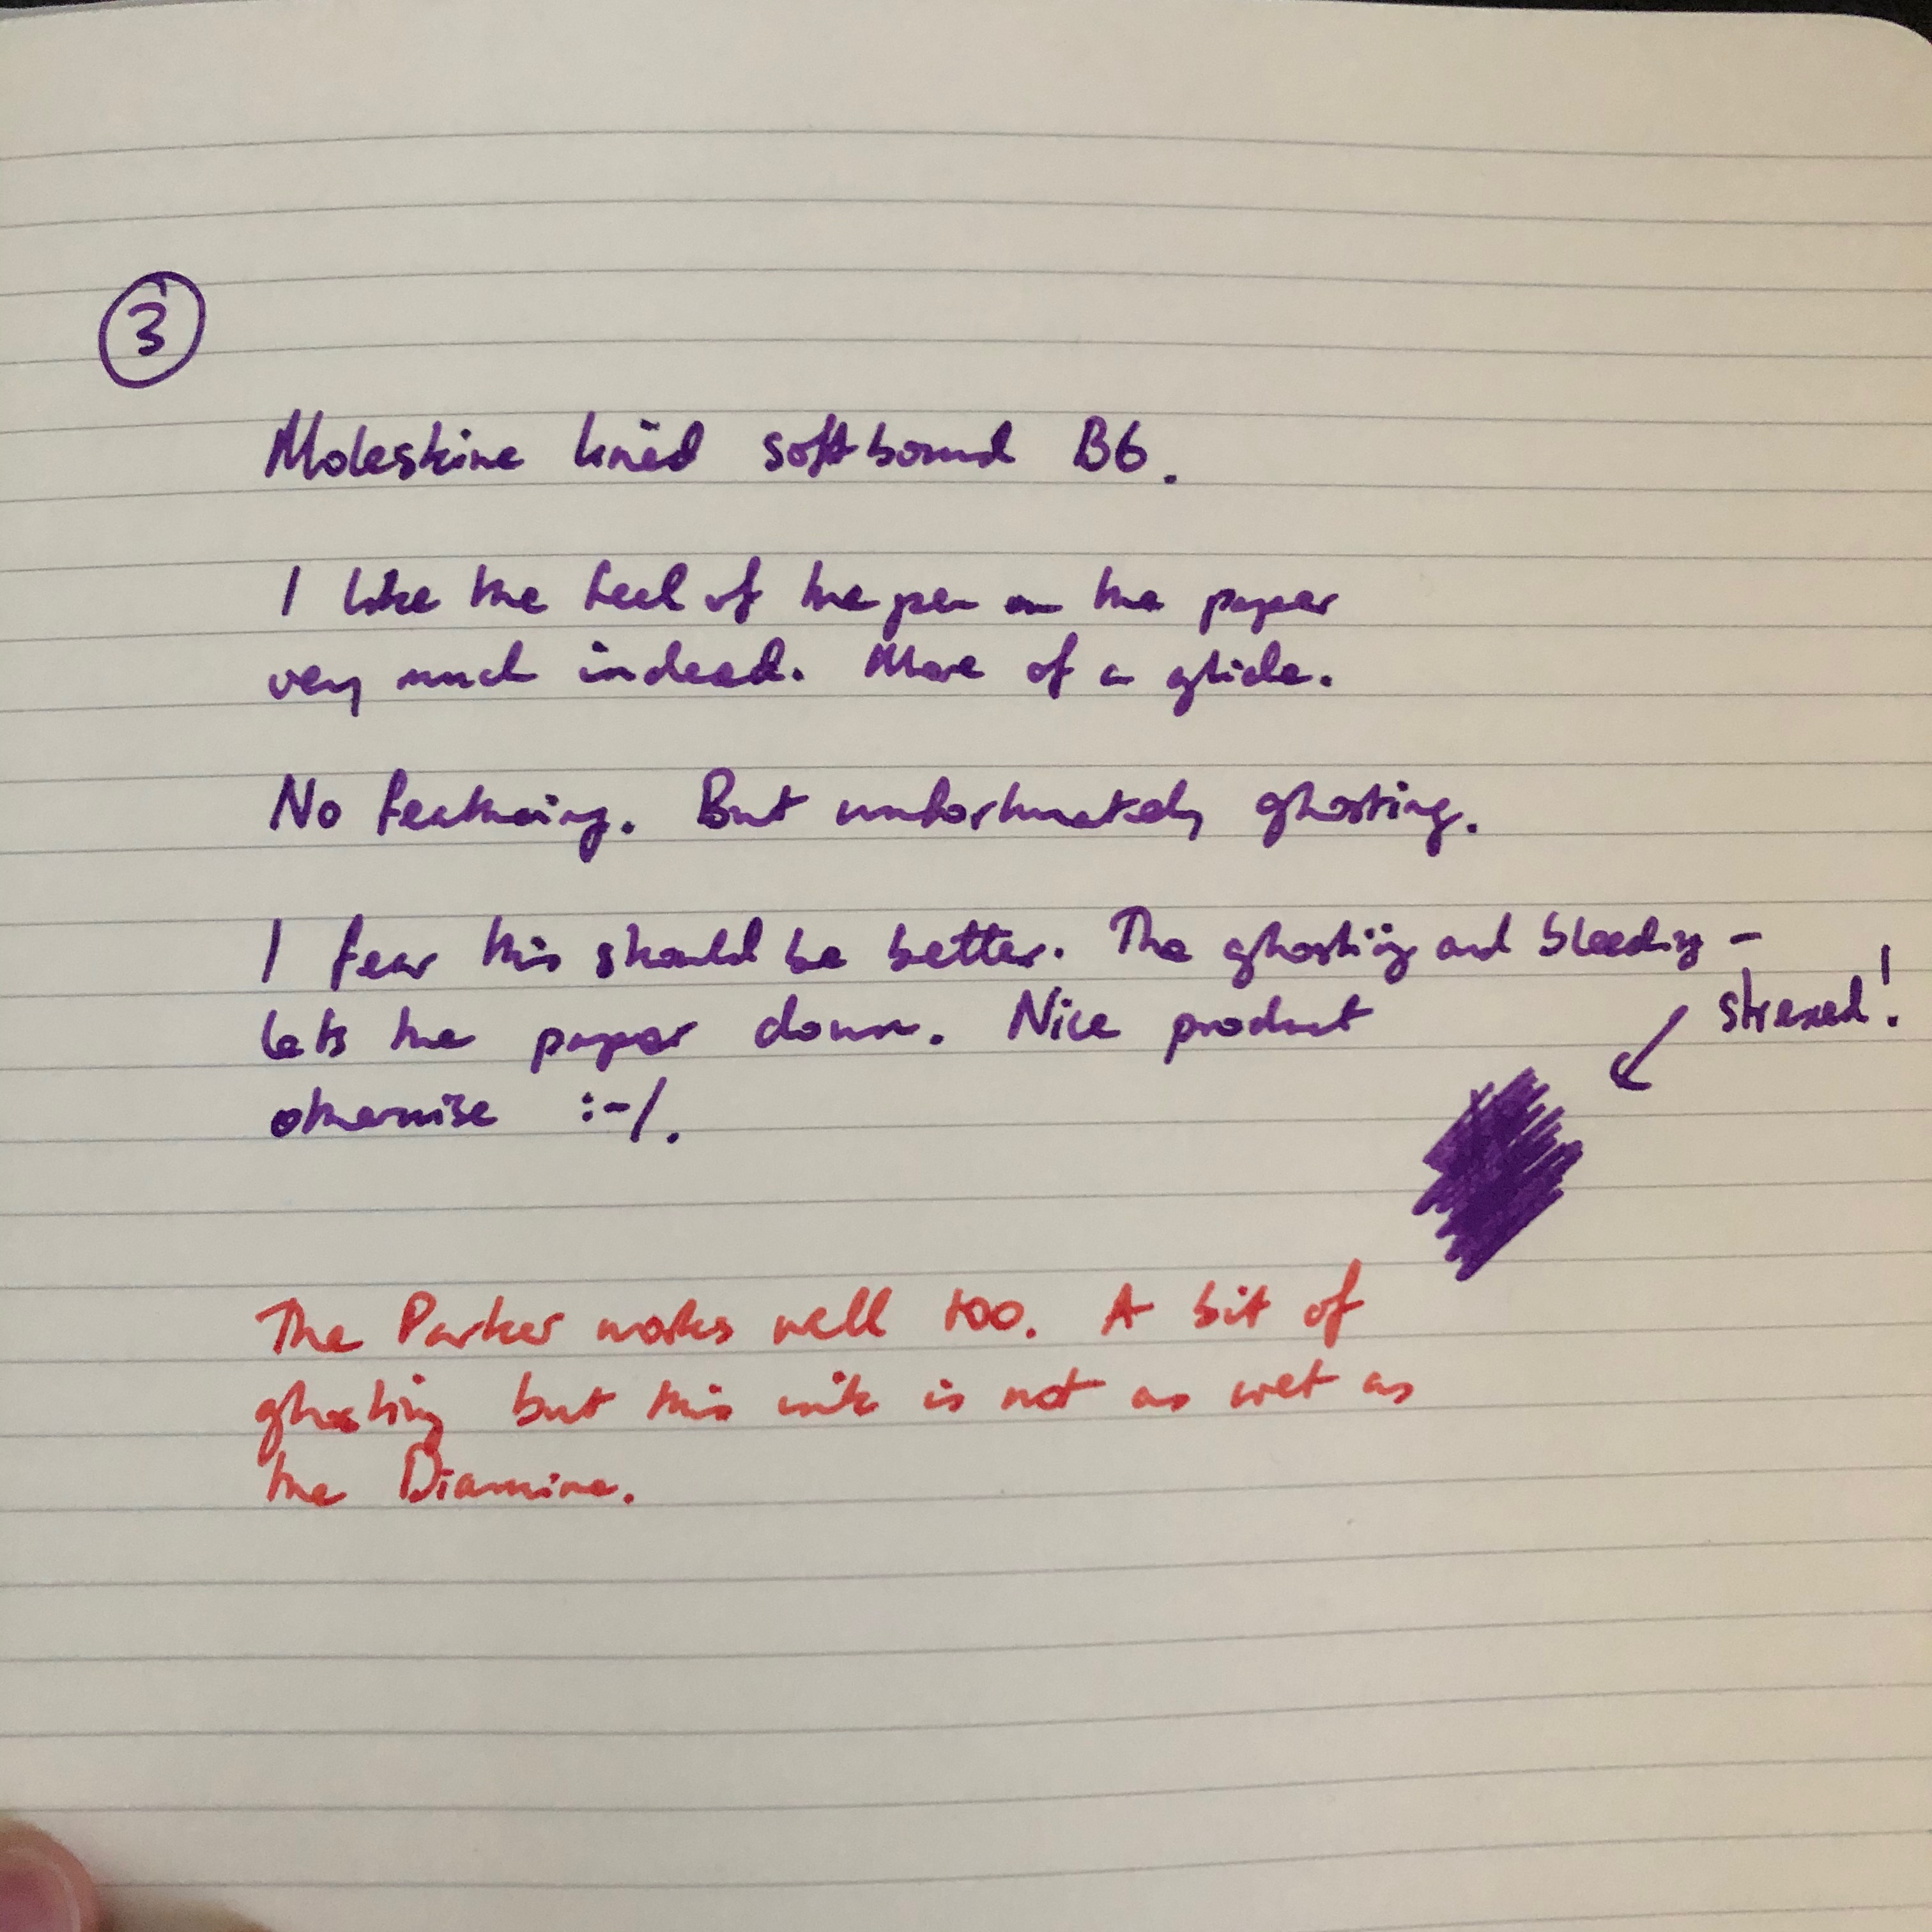 3
Moleskine lined softbound B6.
I like the feel of the pen on the paper
very much indeed. More of a glide.
No feathering. But unfortunately ghosting.
I fear this should be better. The ghosting and bleeding –
stressed!
lets the paper down. Nice product
otherwise :-/.
The Parker works well too. A bit of
ghosting but this ink is not as wet as
the Diamine.